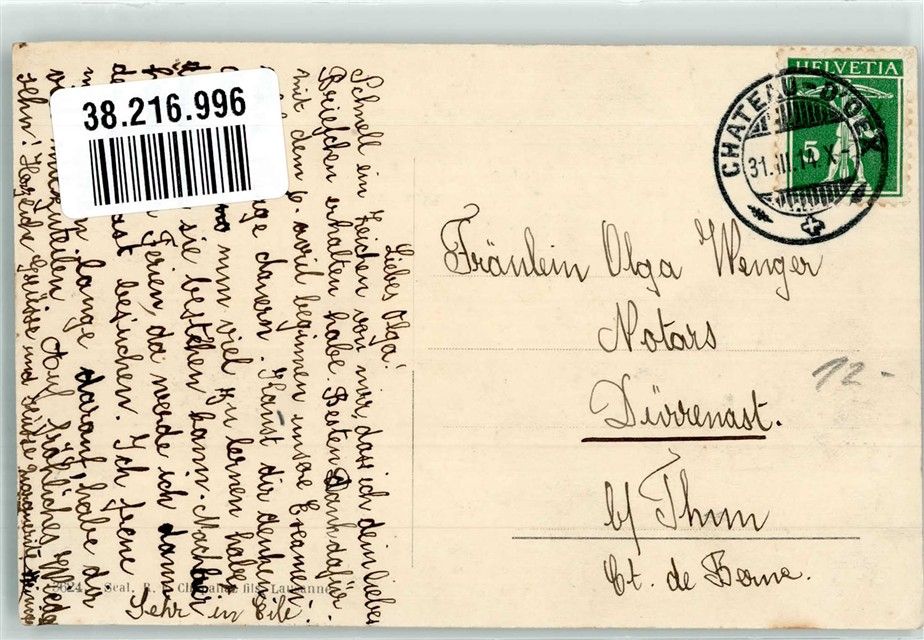 38.216.996
HELVETIA
5
CHATEAU-D'OEX
31.III.14 X-
Fräulein Olga Wenger
Notars
Dürrenast.
b/ Thun
Ct. de Berne.
12.-
Liebes Olga!
Schnell ein Zeichen von mir, dass ich dein liebes
Briefchen erhalten habe. Besten Dank dafür.
mit dem 6. April beginnen unsre Examen
dauern. Kannst dir denken
nun viel zu lernen habe
sie bestehen kann. Nachher
Ferien, da werde ich dann
besuchen. Ich freue
lange darauf, habe dir
mitzuteilen. Auf fröhliches Wied
sehn! Herzliche Grüsse und Küsse Marguerite
Sehr in Eile!
3624 Seal, fils, Lausanne